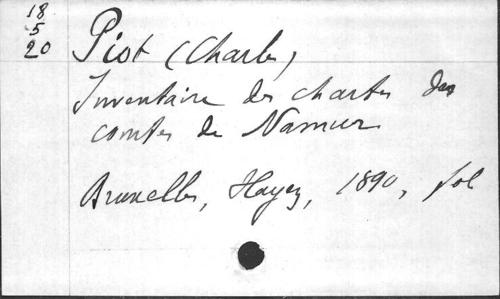 18
5
20
Piot (Charles)
Inventaire des chartes des
comtes de Namur
Bruxelles, Hayez, 1890, fol